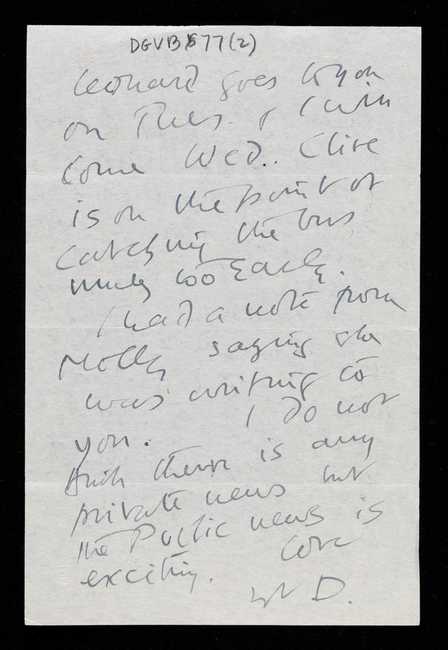 DGVB 577(2)
Leonard goes to you
on Thurs. & I will
come Wed.. Clive
is on the point of
catching the bus
much too early.
I had a note from
Molly saying she
was writing to
you. I do not
think there is any
private news but
the Public news is
exciting. Love
D.